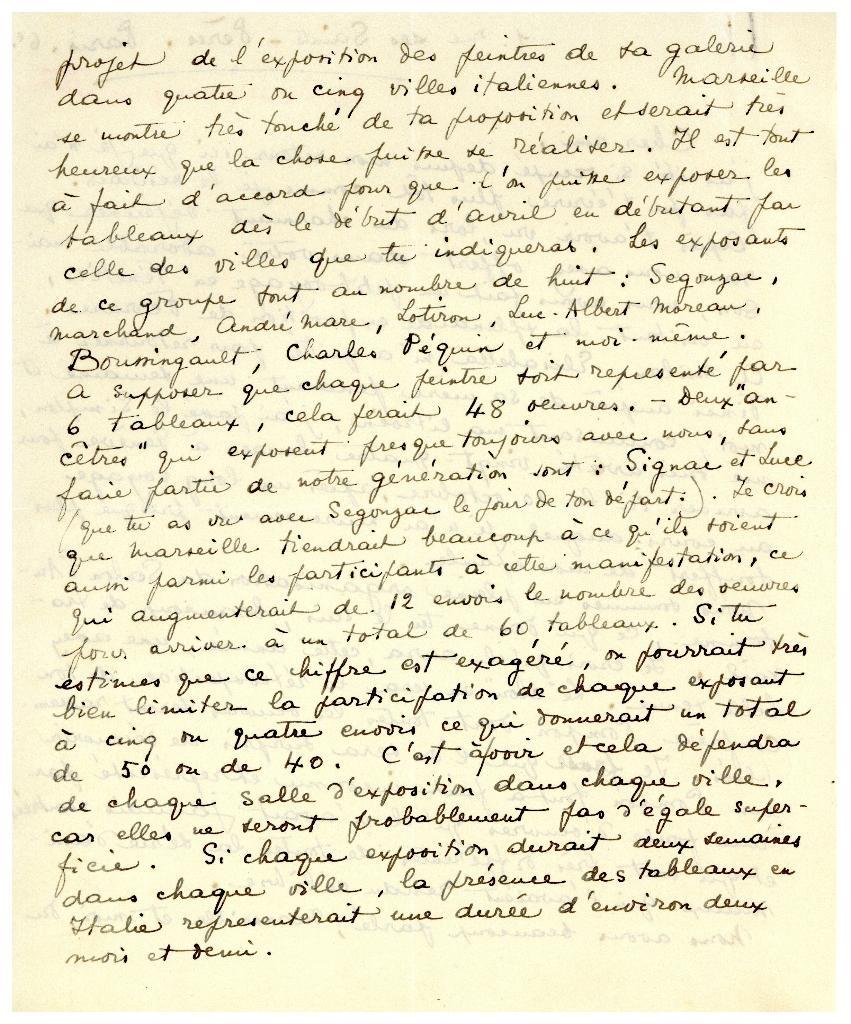 projet de l'exposition des peintres de sa galerie
dans quatre ou cinq villes italiennes. Marseille
se montre très touché de ta proposition et serait très
heureux que la chose puisse se réaliser. Il est tout
à fait d'accord pour que l'on puisse exposer les
tableaux dès le début d'avril en débutant par
celle des villes que tu indiqueras. Les exposants
de ce groupe sont au nombre de huit : Segonzac,
Marchand, André Mare, Lotiron, Luc-Albert Moreau,
Boussingault, Charles Péquin et moi-même.
A supposer que chaque peintre soit representé par
6 tableaux, cela ferait 48 oeuvres. - Deux "an-
cêtres" qui exposent presque toujours avec nous, sans
faire partie de notre génération sont : Signac et Luce
(que tu as vu avec Segonzac le jour de ton départ.). Je crois
que Marseille tiendrait beaucoup à ce qu'ils soient
aussi parmi les participants à cette manifestation, ce
qui augmenterait de 12 envois le nombre des oeuvres
pour arriver à un total de 60 tableaux. Si tu
estimes que ce chiffre est exagéré, on pourrait très
bien limiter la participation de chaque exposant
à cinq ou quatre envois ce qui donnerait un total
de 50 ou de 40. C'est à voir et cela dépendra
de chaque salle d'exposition dans chaque ville,
car elles ne seront probablement pas d'égale super-
ficie. Si chaque exposition durait deux semaines
dans chaque ville, la présence des tableaux en
Italie representerait une durée d'environ deux
mois et demi.